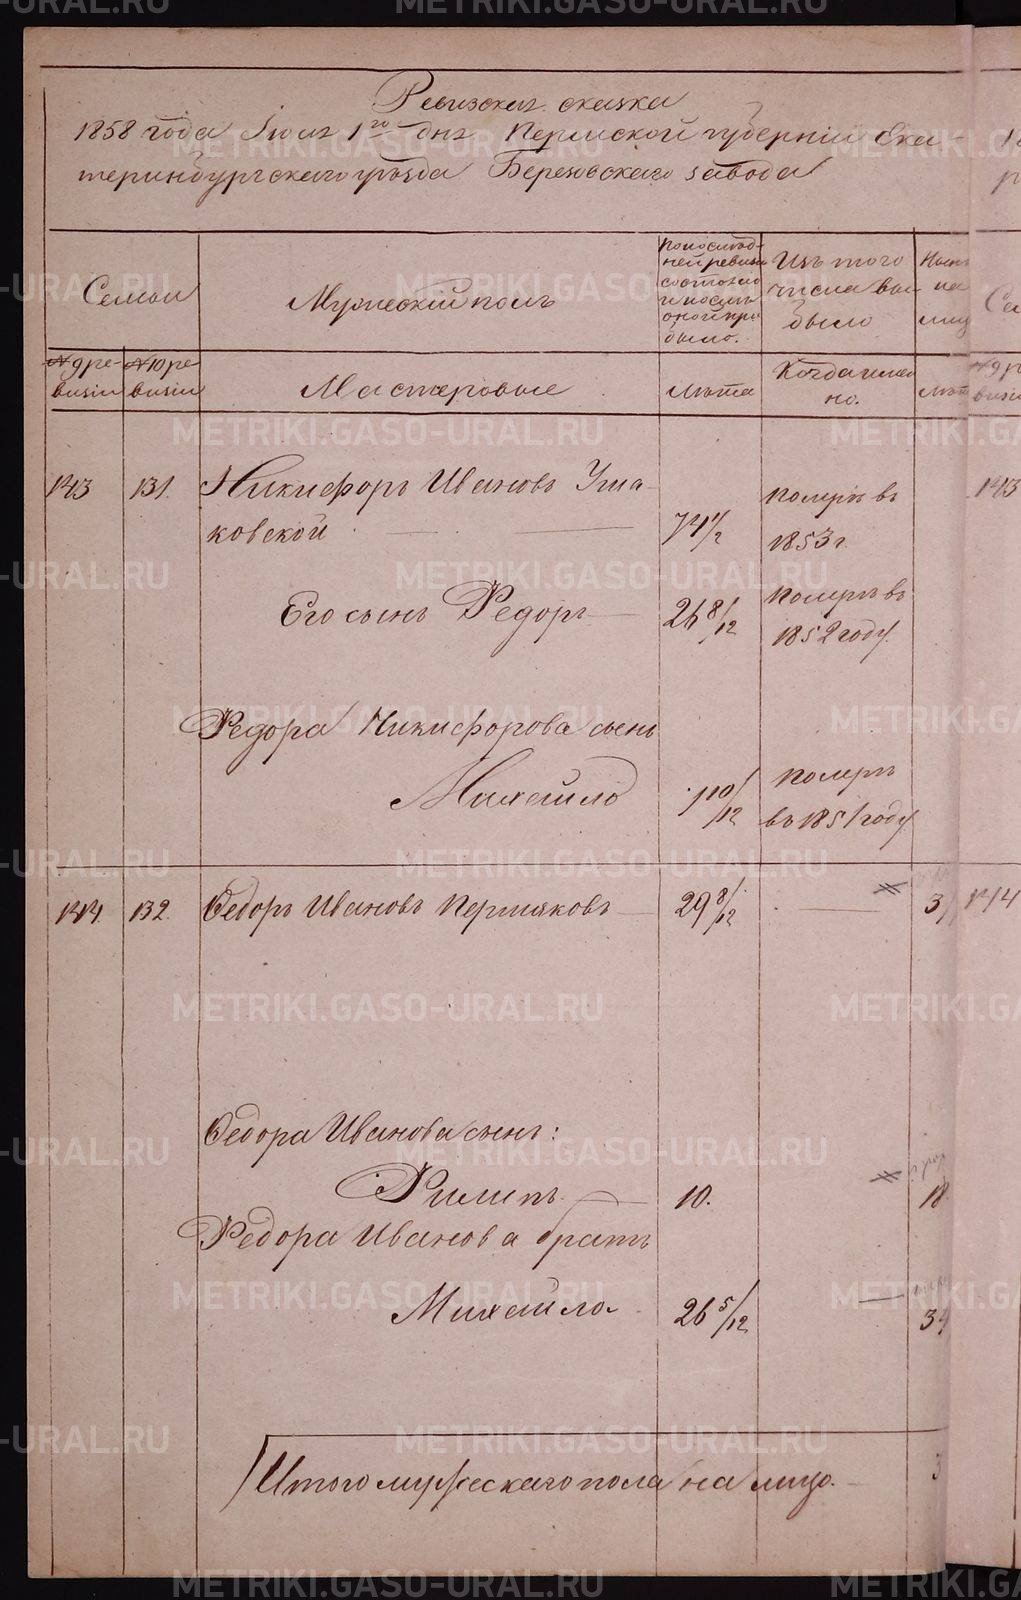 Ревизская сказка
1858 года Июля 1го дня Пермской губернии Ека-
теринбургского уѣзда Березовского завода
Семьи
Мужескій полъ
По послѣд-
ней ревизіи
состояло
и послѣ
оной при-
было.
Изъ того
числа вы-
было
Нынѣ
на
лицо
№ 9 ре-
визіи
№ 10 ре-
визіи
Мастеровые
лѣта
Когда имен-
но.
лѣта
143
131.
Никифоръ Ивановъ Уша-
ковской
74 1/2
померъ въ
1853 г.
Его сынъ Федоръ
26 8/12
померъ въ
1852 году
Федора Никифорова сынъ
Михайло
1 10/12
померъ
въ 1851 году
144.
132.
Федоръ Ивановъ Пермяковъ
29 8/12
Федора Иванова сынъ:
Филипъ
10.
18
Федора Иванова братъ
Михайло
26 5/12
Итого мужескаго пола на лицо.
3
143
144
METRIKI.GASO-URAL.RU